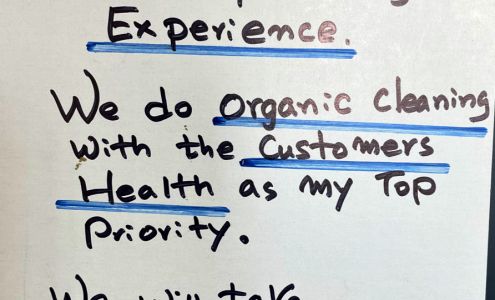 Experience.
We do Organic Cleaning
with the Customers
Health as my Top
Priority.
We will take